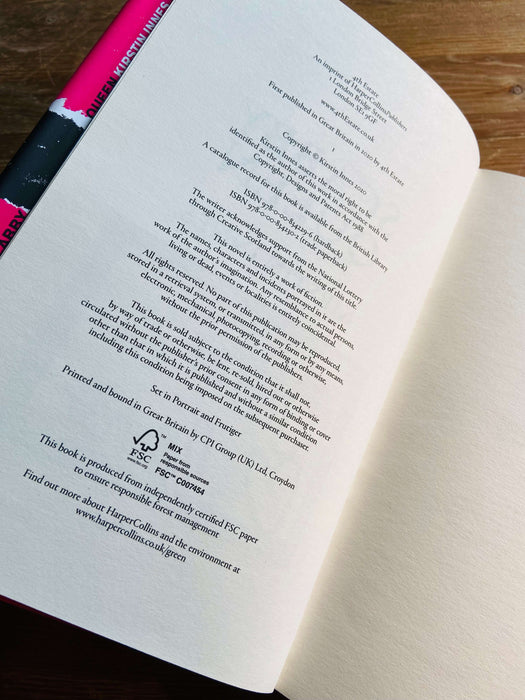 4th Estate
An imprint of HarperCollinsPublishers
1 London Bridge Street
London SE1 9GF
www.4thEstate.co.uk
First published in Great Britain in 2020 by 4th Estate
1
Copyright © Kirstin Innes 2020
Kirstin Innes asserts the moral right to be
identified as the author of this work in accordance with the
Copyright, Designs and Patents Act 1988
A catalogue record for this book is available from the British Library
ISBN 978-0-00-834229-6 (hardback)
ISBN 978-0-00-834230-2 (trade paperback)
The writer acknowledges support from the National Lottery
through Creative Scotland towards the writing of this title.
This novel is entirely a work of fiction.
The names, characters and incidents portrayed in it are the
work of the author's imagination. Any resemblance to actual persons,
living or dead, events or localities is entirely coincidental.
All rights reserved. No part of this publication may be reproduced,
stored in a retrieval system, or transmitted, in any form or by any means,
electronic, mechanical, photocopying, recording or otherwise,
without the prior permission of the publishers.
This book is sold subject to the condition that it shall not,
by way of trade or otherwise, be lent, re-sold, hired out or otherwise
circulated without the publisher's prior consent in any form of binding or cover
other than that in which it is published and without a similar condition
including this condition being imposed on the subsequent purchaser.
Set in Portrait and Frutiger
Printed and bound in Great Britain by CPI Group (UK) Ltd, Croydon
FSC
www.fsc.org
MIX
Paper from
responsible sources
FSC™ C007454
This book is produced from independently certified FSC paper
to ensure responsible forest management
Find out more about HarperCollins and the environment at
www.harpercollins.co.uk/green
QUEEN KIRSTIN INNES
ABBY